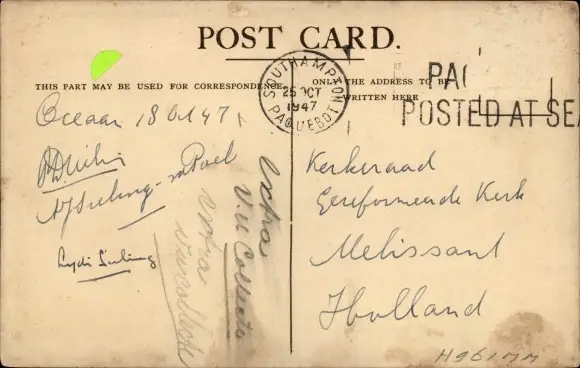 POST CARD.
THIS PART MAY BE USED FOR CORRESPONDENCE.
ONLY THE ADDRESS TO BE
WRITTEN HERE
SOUTHAMPTON
25 OCT
1947
PAQUEBOT
PA
POSTED AT SEA
Oceaan 18 Oct 47
Extra
V.U Collecte
extra
Kerkeraad
Gereformeerde Kerk
Melissant
Holland
H961MM